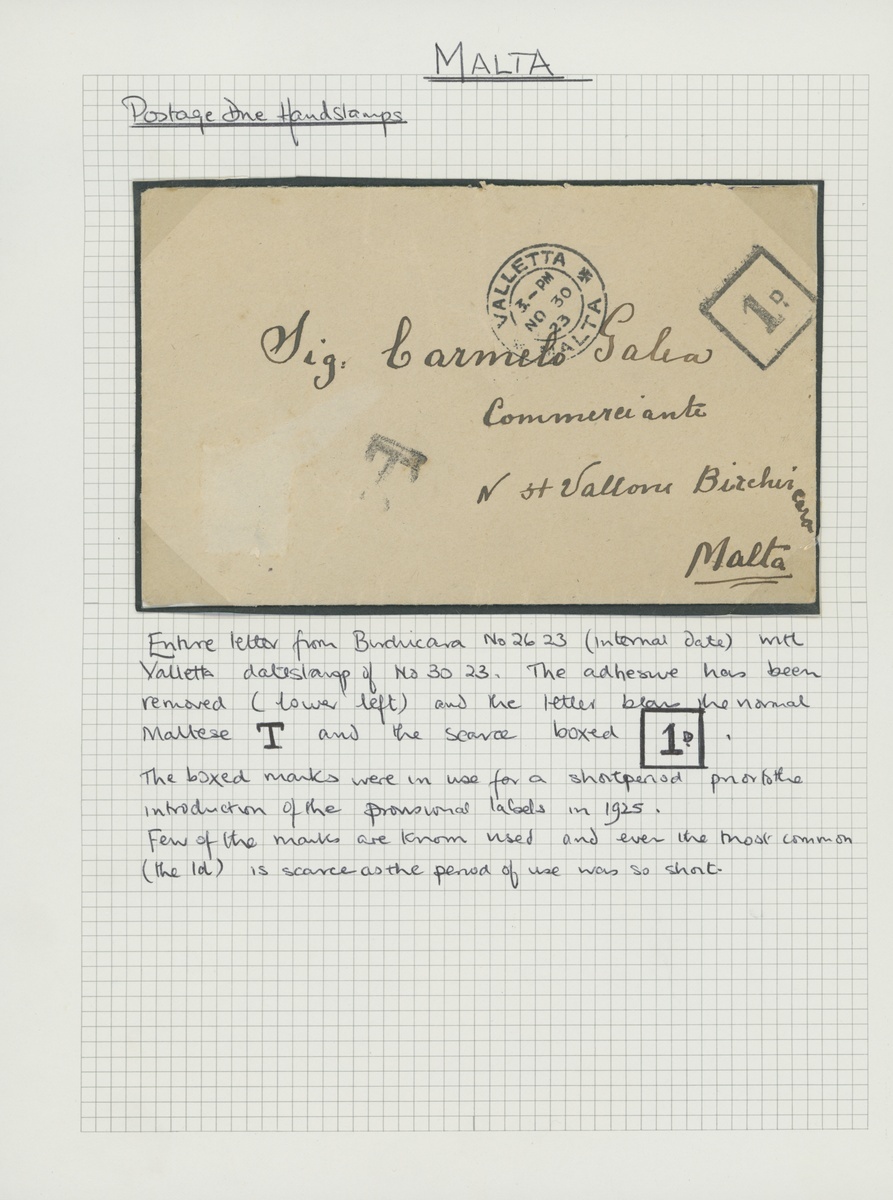 MALTA
Postage Due Handstamps
VALLETTA MALTA
3-PM
NO 30
23
1D
Sig. Carmelo Galea
Commerciante
N st Vallone Birchircara
Malta
T
Entire letter from Birchicara No 26 23 (internal date) with
Valletta datestamp of No 30 23. The adhesive has been
removed (lower left) and the letter bears the normal
Maltese T and the scarce boxed 1D.
The boxed marks were in use for a short period prior to the
introduction of the provisional labels in 1925.
Few of the marks are known used and even the most common
(the 1d) is scarce as the period of use was so short.